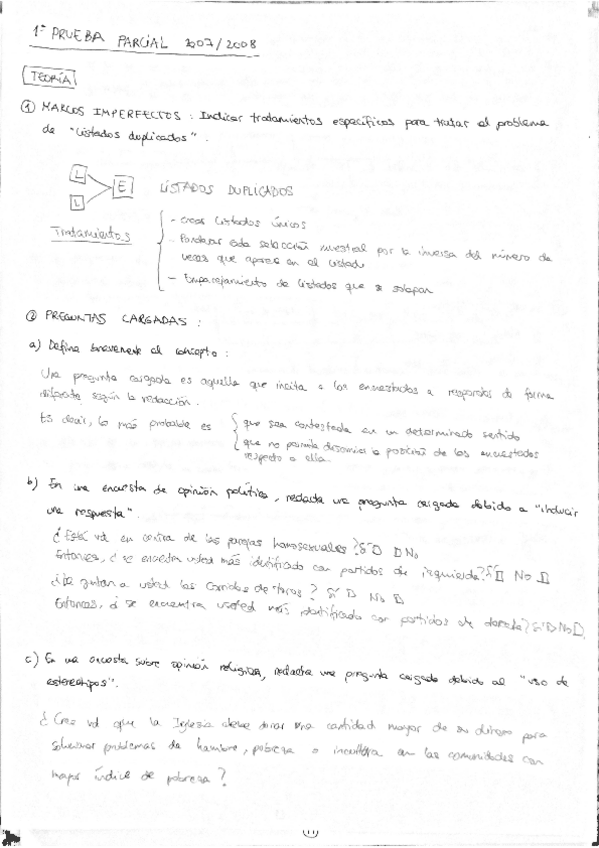 1ª PRUEBA PARCIAL 2007/2008
TEORÍA
① MARCOS IMPERFECTOS : Indicar tratamientos específicos para tratar el problema
de "Listados duplicados".
L
L
E
LISTADOS DUPLICADOS
Tratamientos
- Crear listados únicos
- Ponderar cada selección muestral por la inversa del número de
veces que aparece en el listado
- Emparejamiento de listados que se solapan
② PREGUNTAS CARGADAS :
a) Defina brevemente el concepto :
Una pregunta cargada es aquella que incita a los encuestados a responder de forma
diferente según la redacción.
Es decir, lo más probable es
que sea contestada en un determinado sentido
que no permita discernir la posición de los encuestados
respecto a ella.
b) En una encuesta de opinión política, redacta una pregunta cargada debido a "inducir
una respuesta".
¿Está vd en contra de las parejas homosexuales? Sí □ □ No
Entonces, ¿se encuentra usted más identificado con partidos de izquierda? Sí □ No □
¿Le gustan a usted las Corridas de toros? Sí □ No □
Entonces, ¿se encuentra usted más identificado con partidos de derecha? Sí □ No □
c) En una encuesta sobre opinión religiosa, redacta una pregunta cargada debido al "uso de
estereotipos".
¿Cree vd que la Iglesia debe donar una cantidad mayor de su dinero para
solucionar problemas de hambre, pobreza o incultura en las comunidades con
mayor índice de pobreza?